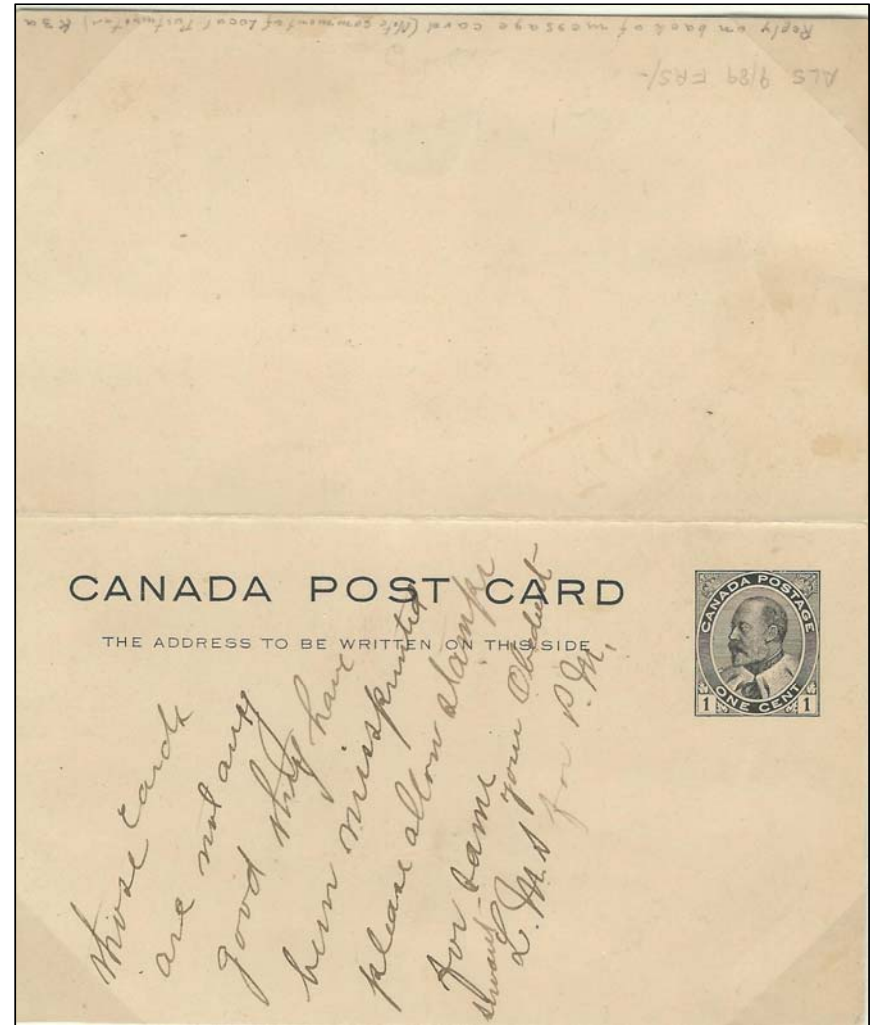 Reply on back of message card (Note comment of Local Postmaster) K3a
ALS 9/89 FRS/-
CANADA POST CARD
THE ADDRESS TO BE WRITTEN ON THIS SIDE
CANADA POSTAGE
1 ONE CENT 1
those cards
are not any
good they have
been missprinted
please allow stamps
for same
your Obedient
servant
for P.M.